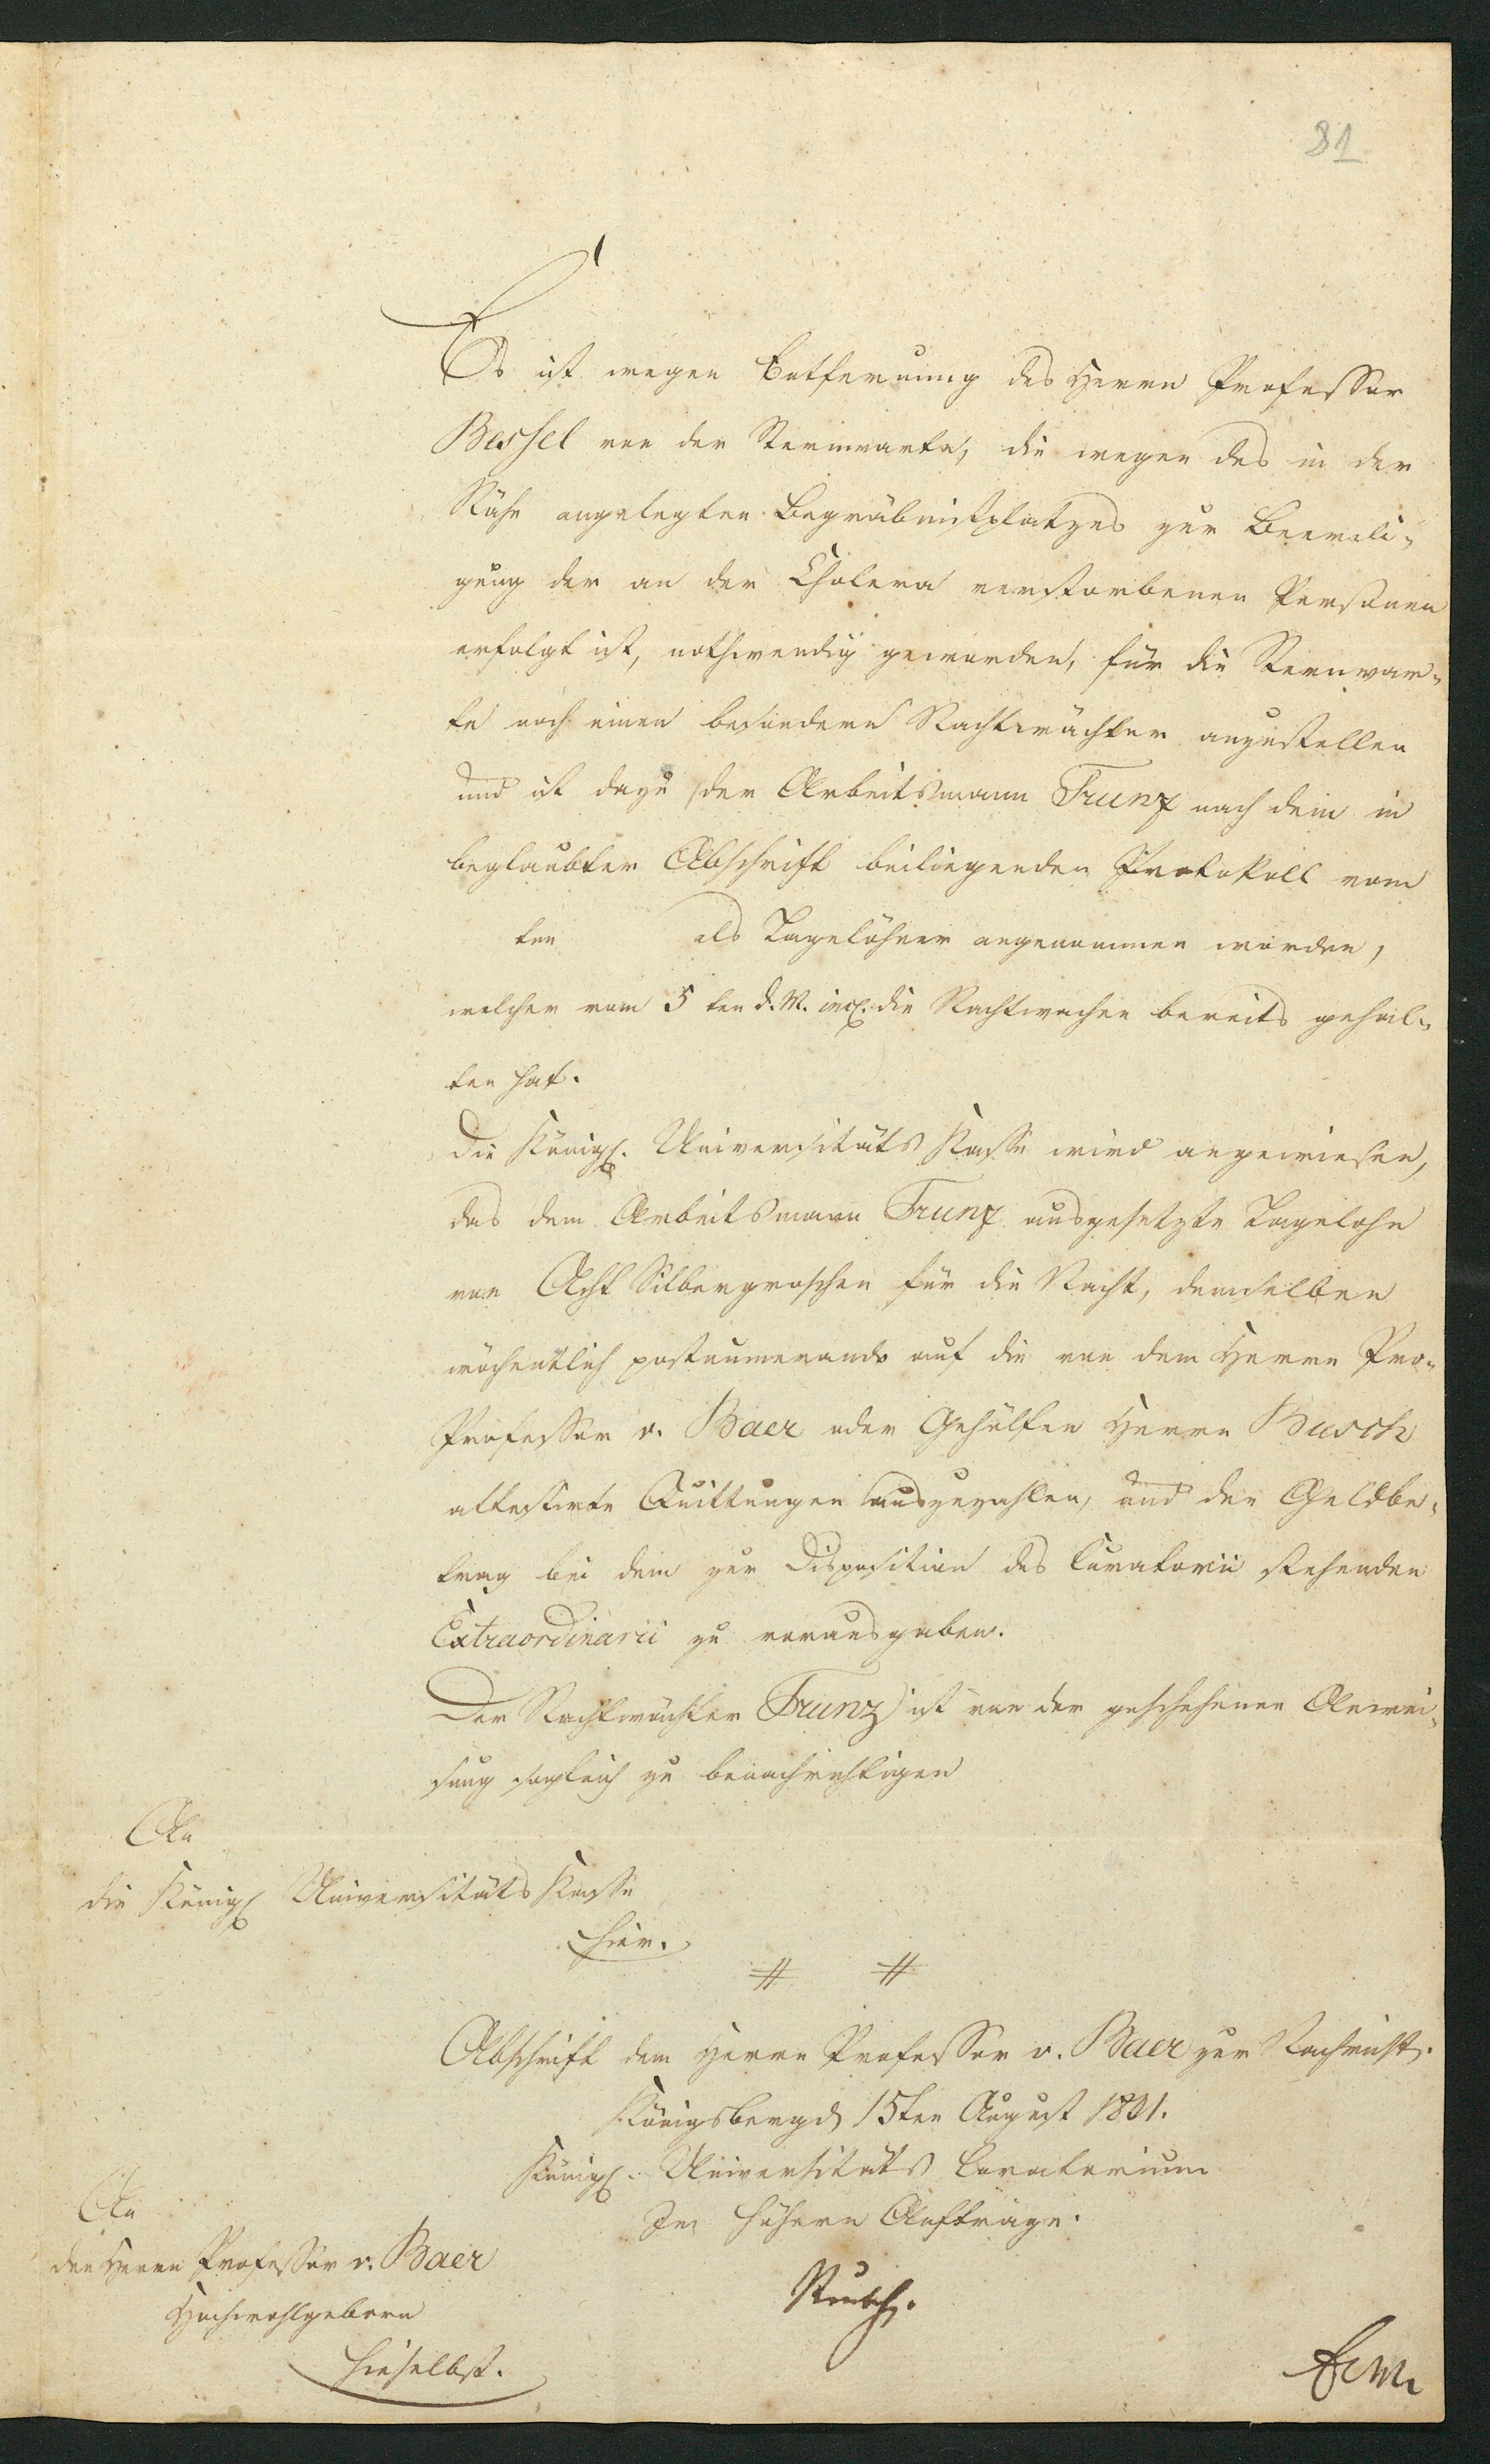 81
Es ist wegen Entfernung des Herrn Professor
Bessel von der Sternwarte, die wegen des in der
Nähe angelegten Begräbnißplatzes zur Beerdi-
gung der an der Cholera verstorbenen Personen
erfolgt ist, nothwendig geworden, für die Sternwar-
te noch einen besondern Nachtwächter anzustellen
und ist dazu der Arbeitsmann Trunz nach dem in
beglaubter Abschrift beiliegenden Protokoll vom
ten als Tagelöhner angenommen worden,
welcher vom 5 ten d. M. incl. die Nachtwachen bereits gehal-
ten hat.
Die Königl. Universitäts Kasse wird angewiesen,
das dem Arbeitsmann Trunz ausgesetzte Tagelohn
von Acht Silbergroschen für die Nacht, demselben
wöchentlich postnumerando auf die von dem Herrn Pro-
Professor v. Baer oder Gehülfen Herrn Busch
attestirte Quittungen auszuzahlen, und den Geldbe-
trag bei dem zur Disposition des Curatorii stehenden
Extraordinarii zu verausgaben.
Der Nachtwächter Trunz ist von der geschehenen Anwei-
sung sogleich zu benachrichtigen
An
die Königl Universitäts Kasse
hier.
# #
Abschrift dem Herrn Professor v. Baer zur Nachricht.
Königsberg d 15ten August 1831.
Königl. Universitäts Curatorium
Im höhern Auftrage.
An
den Herrn Professor v. Baer
Hochwohlgeborn
hieselbst.